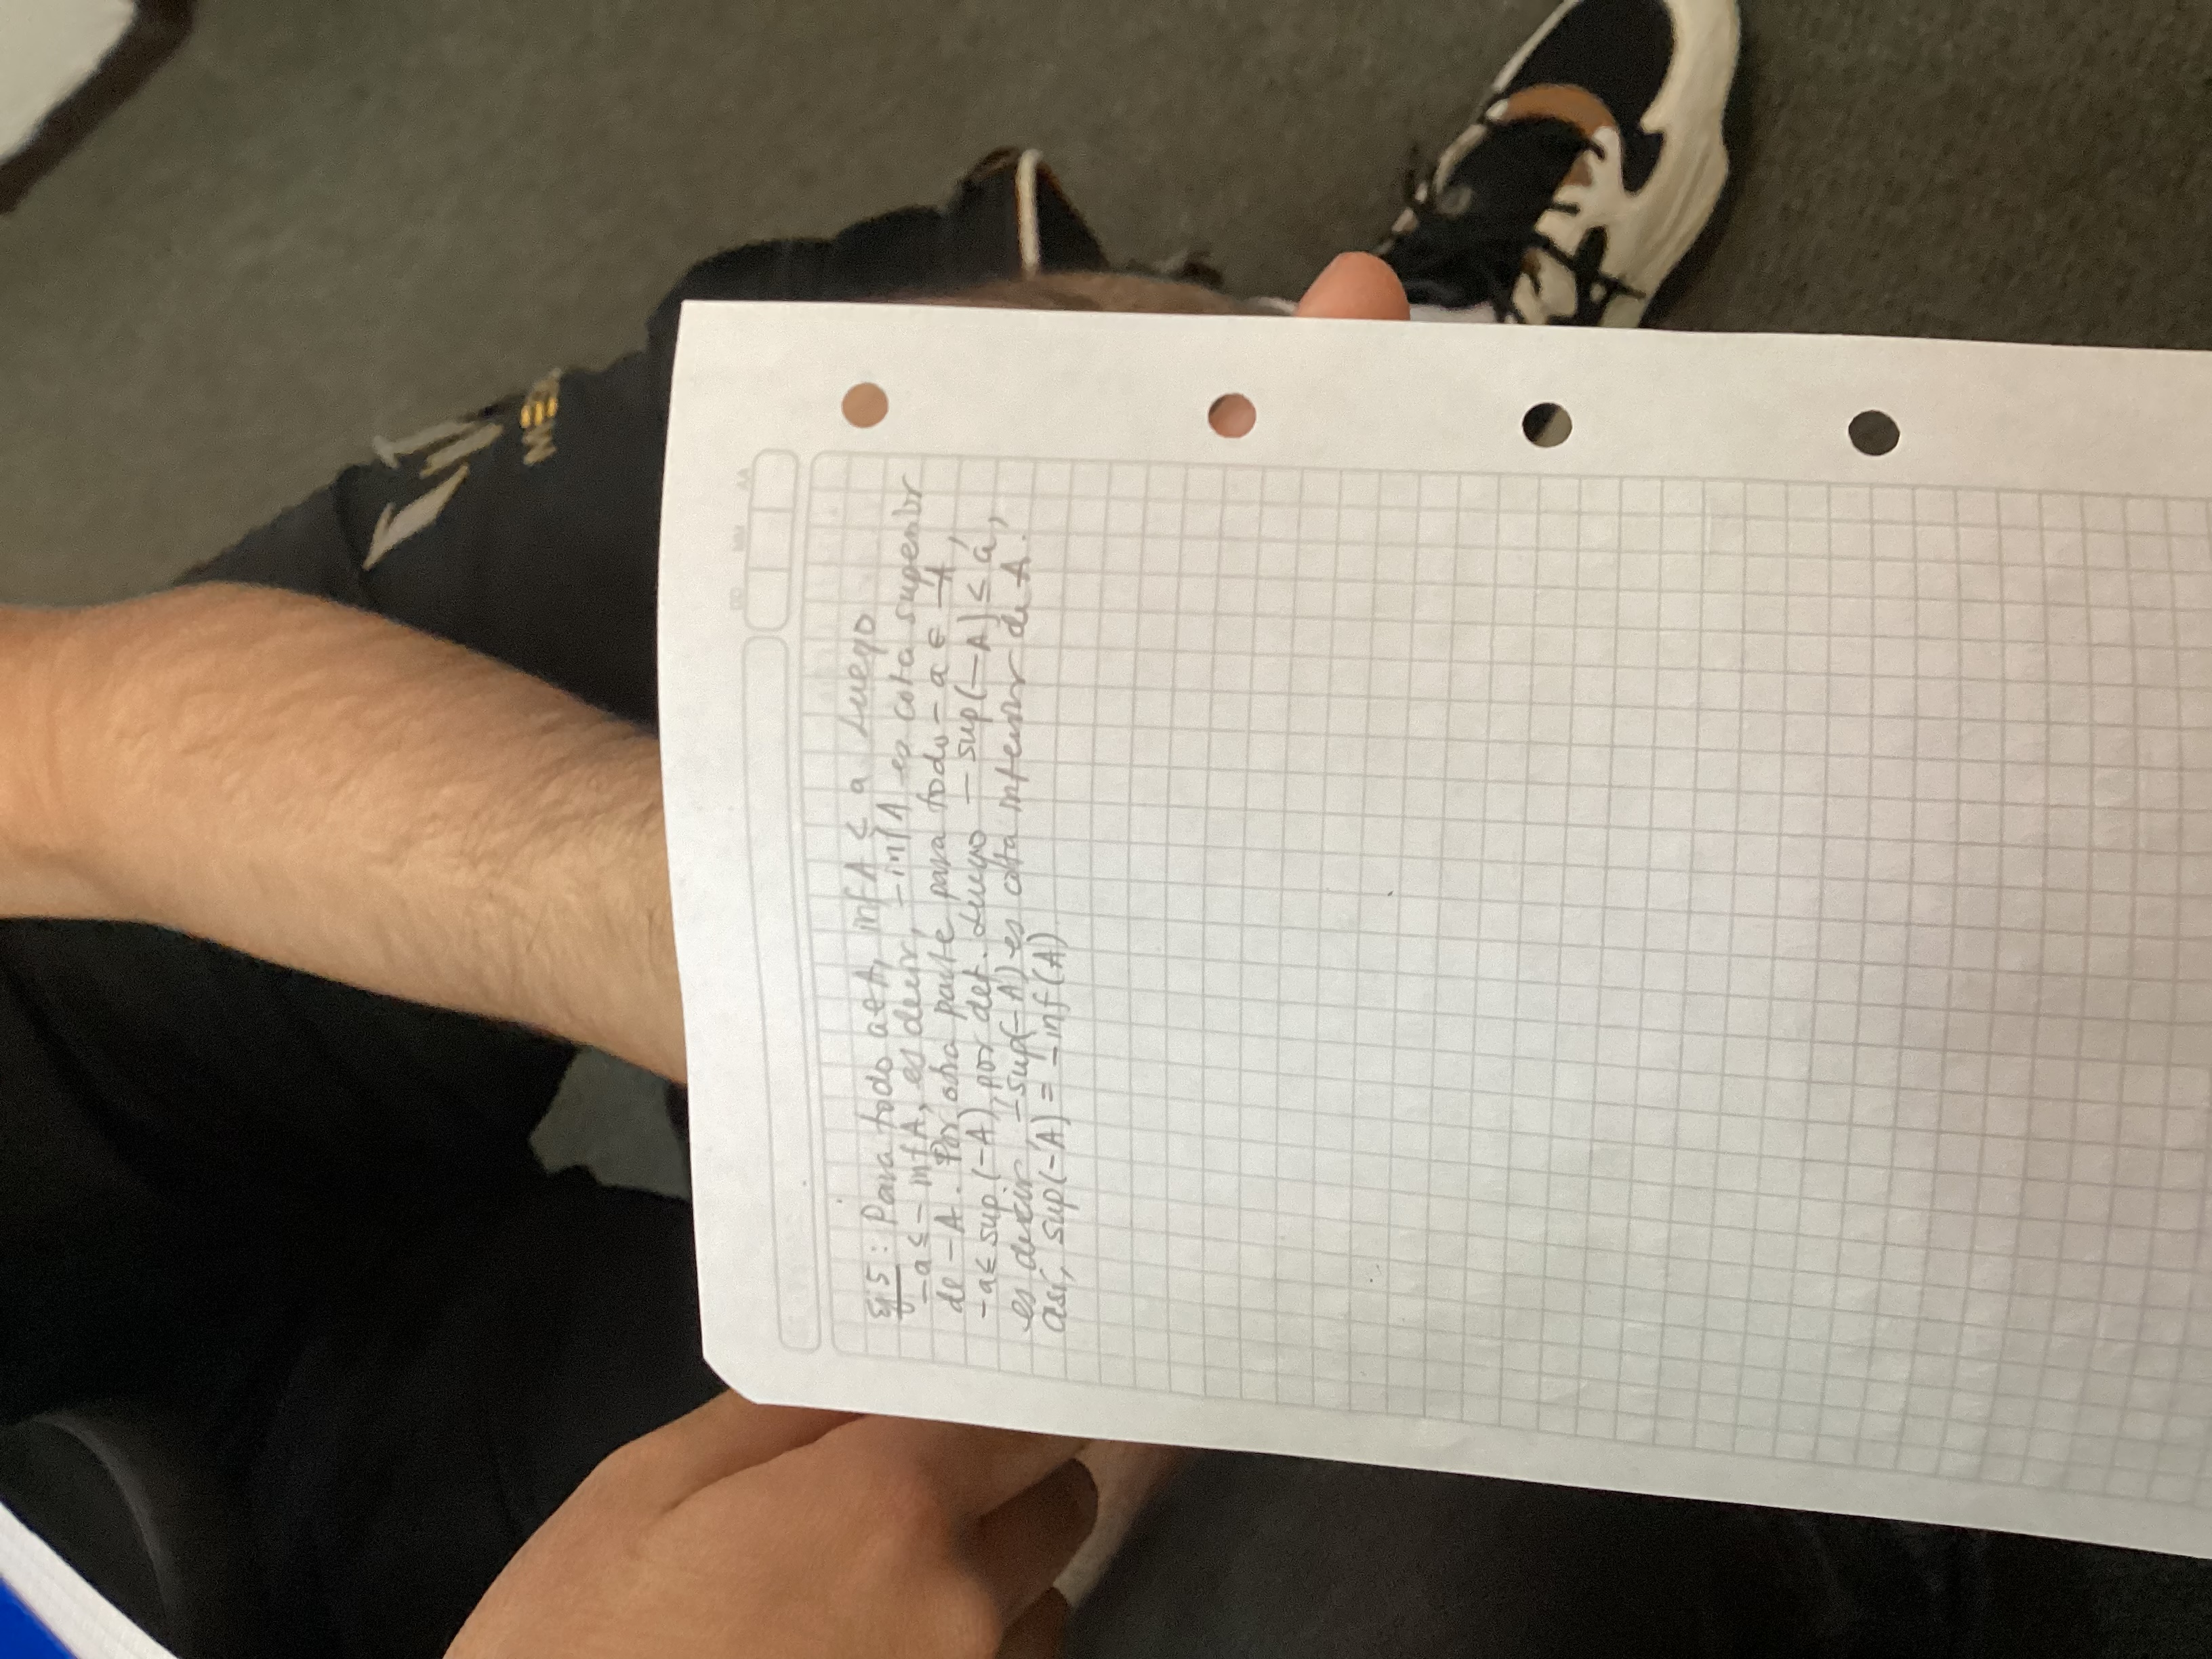 Ej 5: Para todo a ∈ A, inf A ≤ a Luego
-a ≤ - inf A, es decir, -inf A es cota superior
de -A. Por otra parte para todo -a ∈ -A,
-a ≤ sup (-A), por def. Luego - sup(-A) ≤ a,
es decir, -sup(-A) es cota inferior de A.
así, sup(-A) = -inf(A)
DD MM AA